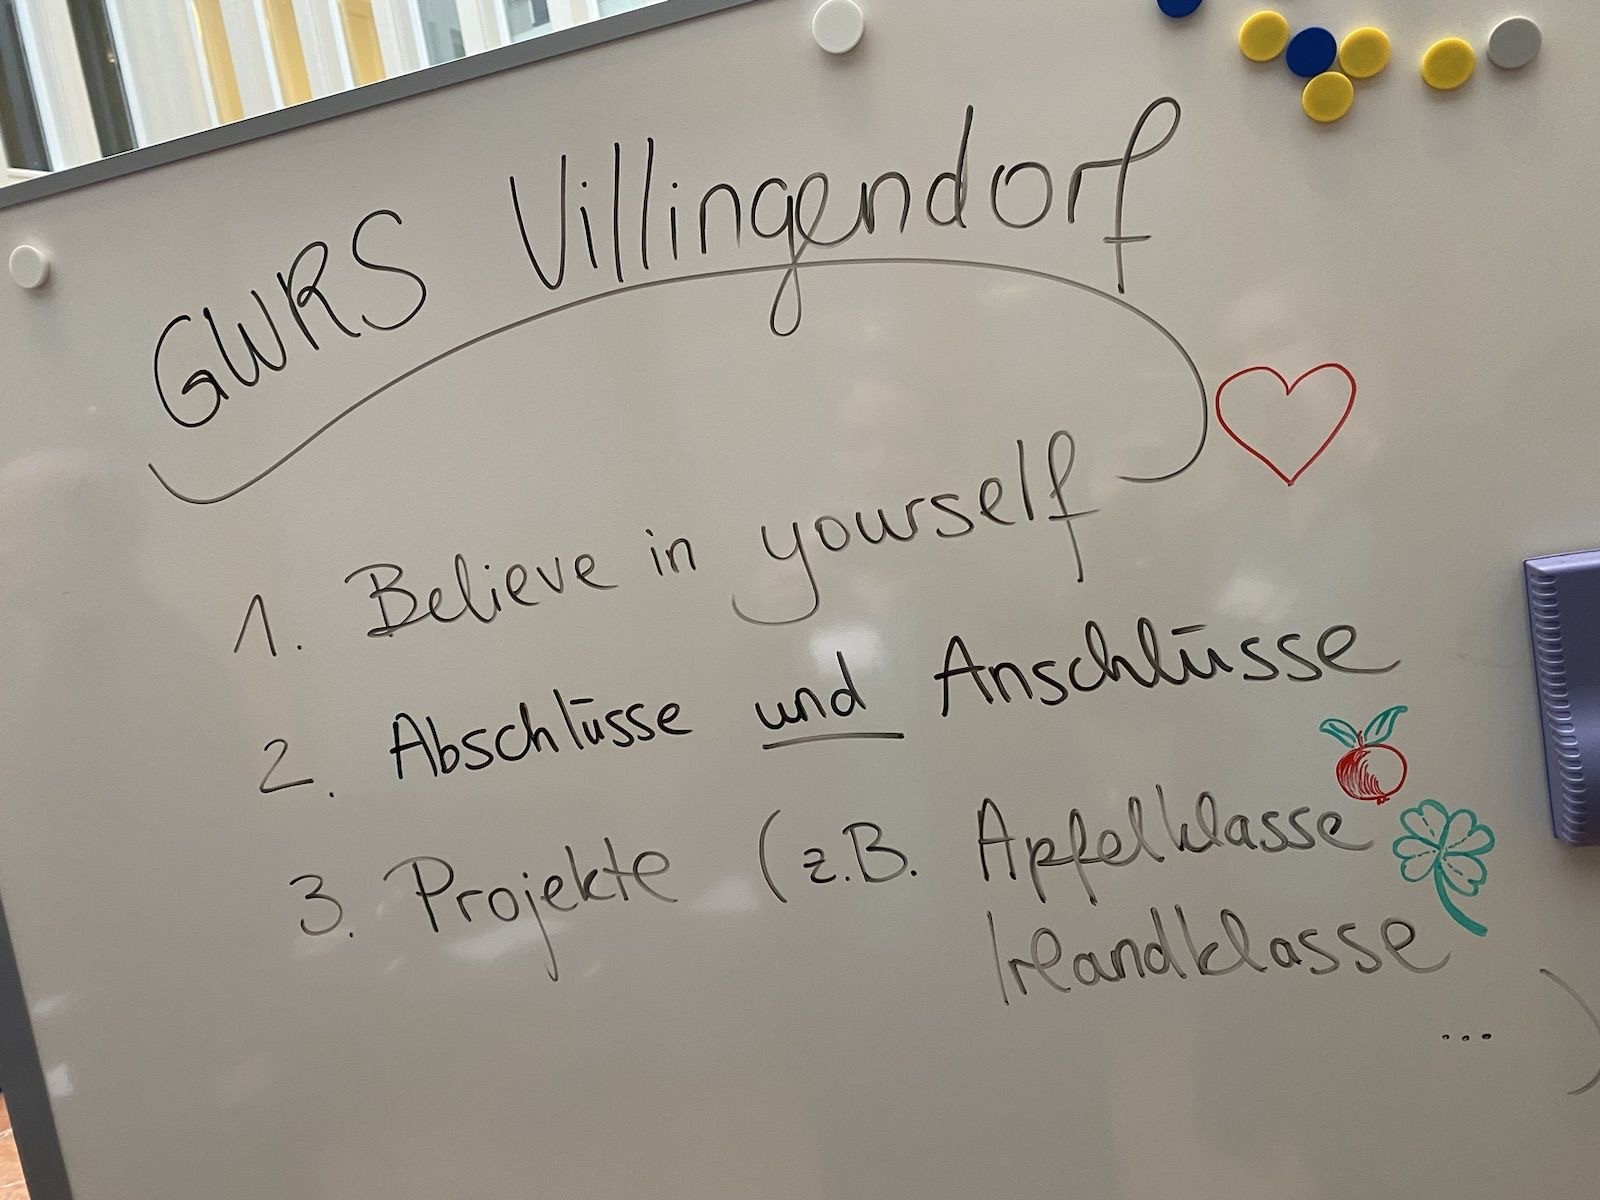 GWRS Villingendorf
1. Believe in yourself
2. Abschlüsse und Anschlüsse
3. Projekte (z.B. Apfelklasse
Irlandklasse
...)